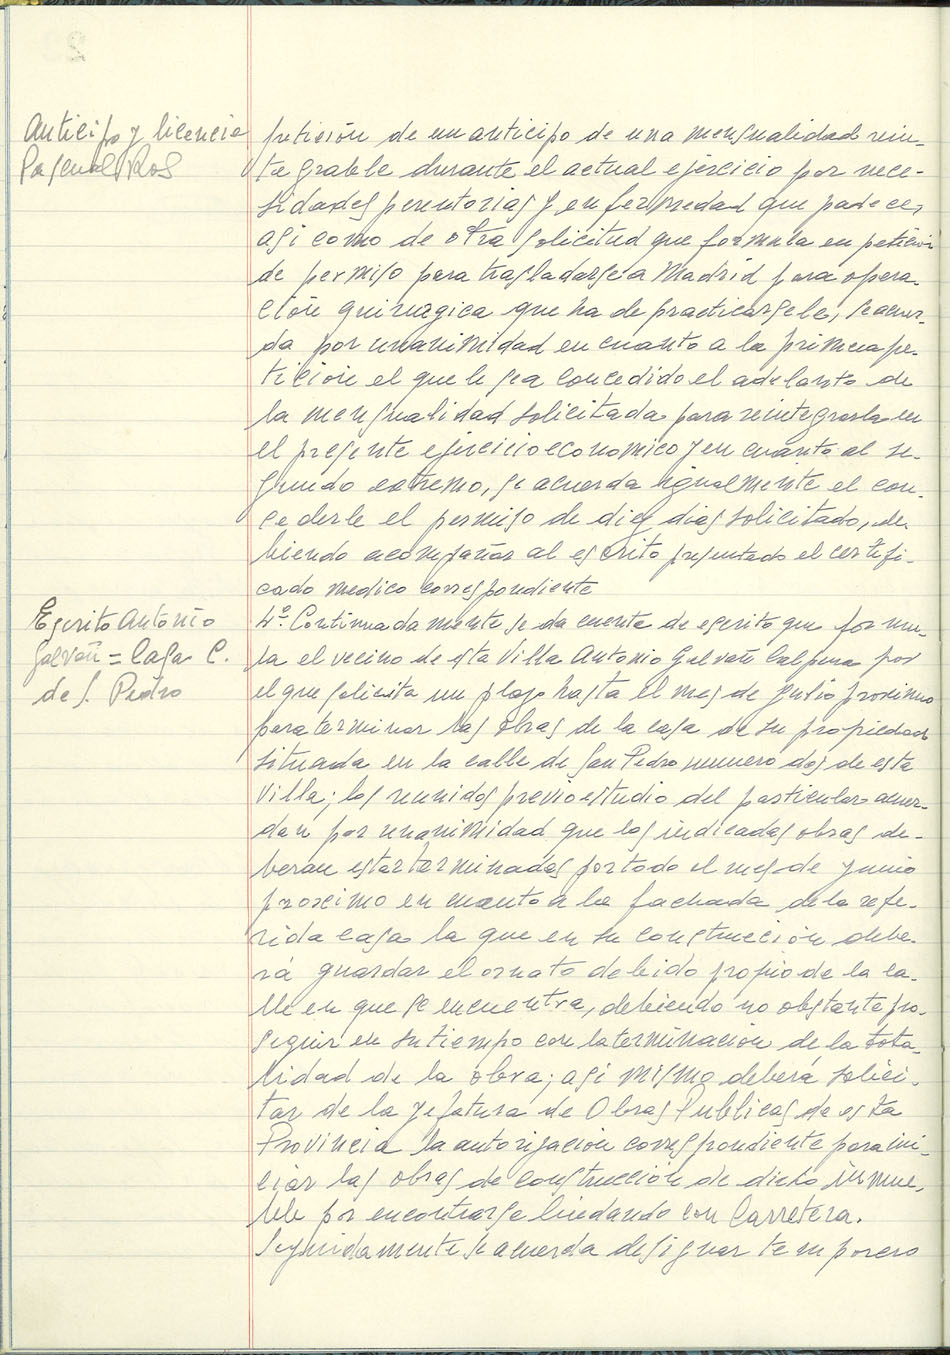 Anticipo y licencia
Pascual Ros
petición de un anticipo de una mensualidad rein-
tegrable durante el actual ejercicio por nece-
sidades perentorias y enfermedad que padece,
asi como de otra solicitud que formula en petición
de permiso para trasladarse a Madrid para opera-
ción quirurgica que ha de practicarsele, se acuer-
da por unanimidad en cuanto a la primera pe-
tición el que le sea concedido el adelanto de
la mensualidad solicitada para reintegrarla en
el presente ejercicio economico y en cuanto al se-
gundo extremo, se acuerda igualmente el con-
cederle el permiso de diez dias solicitado, de-
biendo acompañar al escrito presentado el certifi-
cado medico correspondiente
Escrito Antonio
Galvañ = Casa C.
de S. Pedro
4º. Continuadamente se da cuenta de escrito que formu-
la el vecino de esta Villa Antonio Galvañ Calpena por
el que solicita un plazo hasta el mes de Julio proximo
para terminar las obras de la casa de su propiedad
situada en la calle de San Pedro numero dos de esta
Villa; los reunidos previo estudio del particular acuer-
dan por unanimidad que las indicadas obras de-
beran estar terminadas por todo el mes de junio
proximo en cuanto a la fachada de la refe-
rida casa la que en su construcción debe-
rá guardar el ornato debido propio de la ca-
lle en que se encuentra, debiendo no obstante pro-
seguir en su tiempo con la terminacion de la tota-
lidad de la obra; asi mismo deberá solici-
tar de la Jefatura de Obras Publicas de esta
Provincia la autorizacion correspondiente para ini-
ciar las obras de construcción de dicho inmue-
ble por encontrarse lindando con Carretera.
Seguidamente se acuerda designar temporero